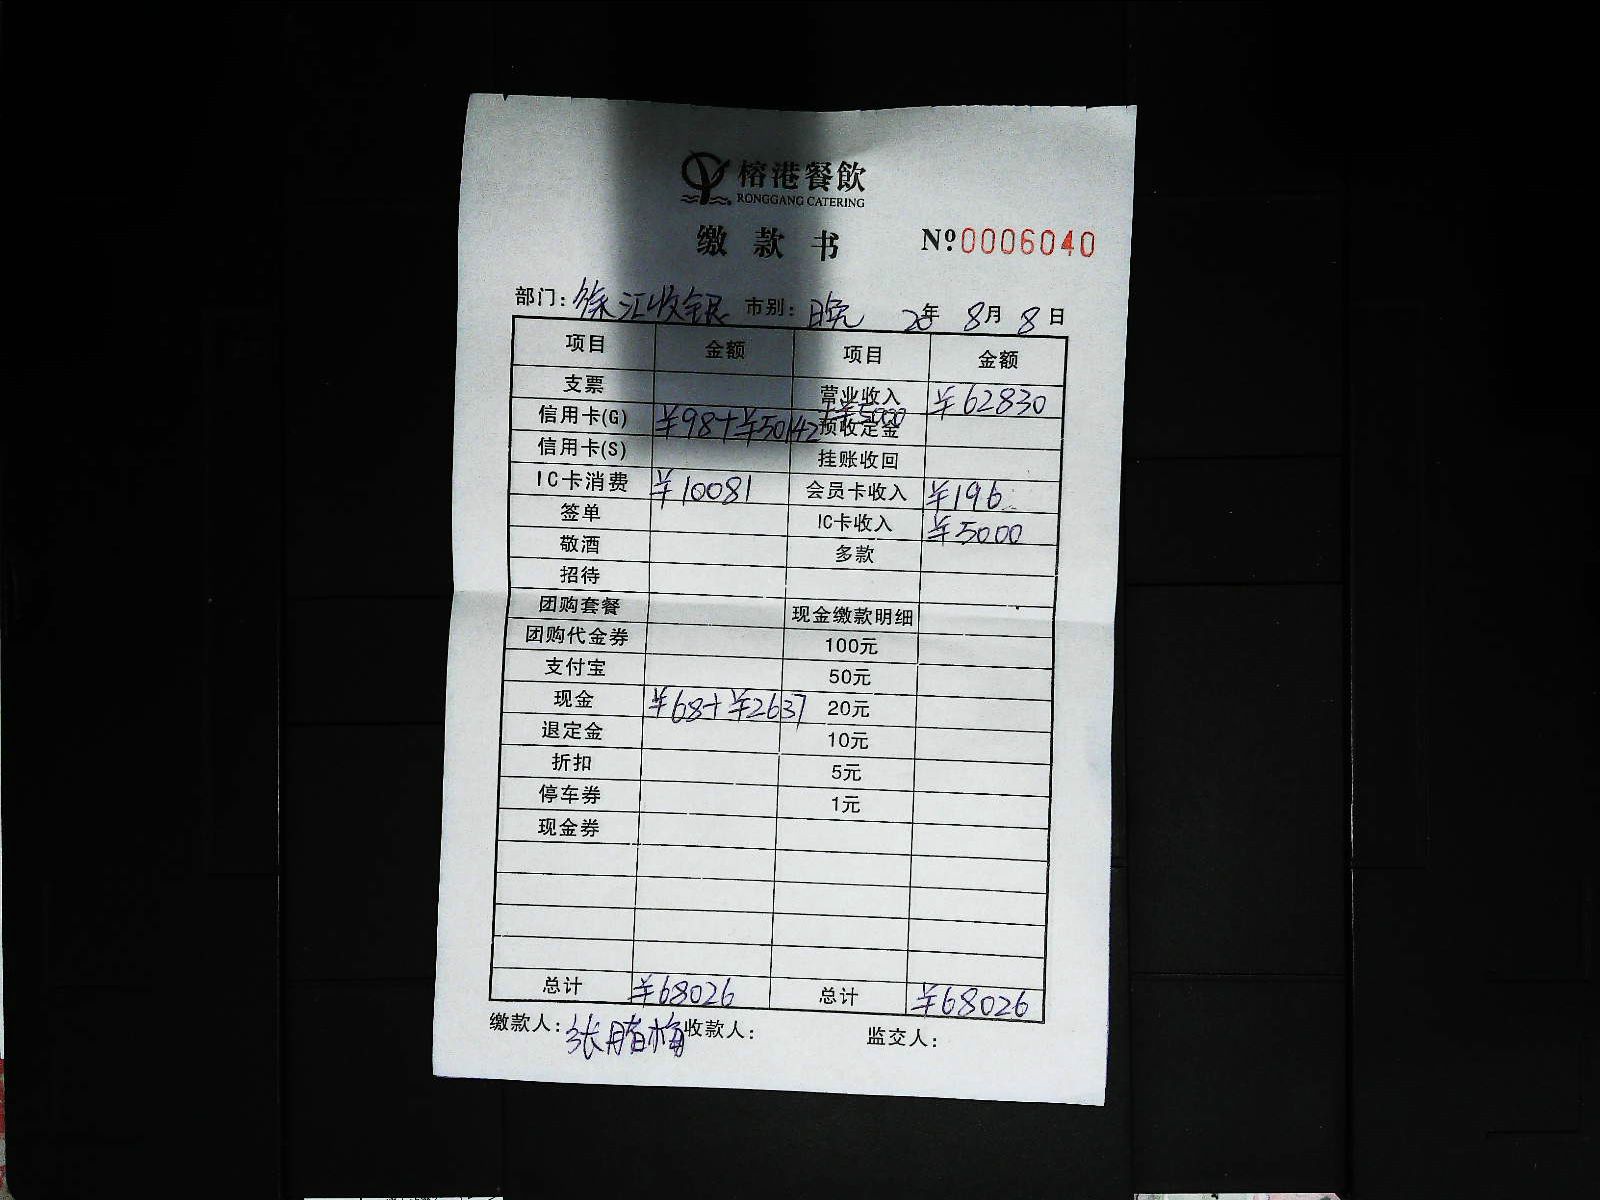 榕港餐飲
RONGGANG CATERING
缴款书 №0006040
部门: 徐汇收银 市别: 晚 20年 8月 8日
项目 金额 项目 金额
支票 营业收入 ¥62830
信用卡(G) ¥98+¥50142+¥5000 预收定金
信用卡(S) 挂账收回
IC卡消费 ¥10081 会员卡收入 ¥196
签单 IC卡收入 ¥5000
敬酒 多款
招待
团购套餐 现金缴款明细
团购代金券 100元
支付宝 50元
现金 ¥68+¥2637 20元
退定金 10元
折扣 5元
停车券 1元
现金券
总计 ¥68026 总计 ¥68026
缴款人: 张 梅 收款人: 监交人: